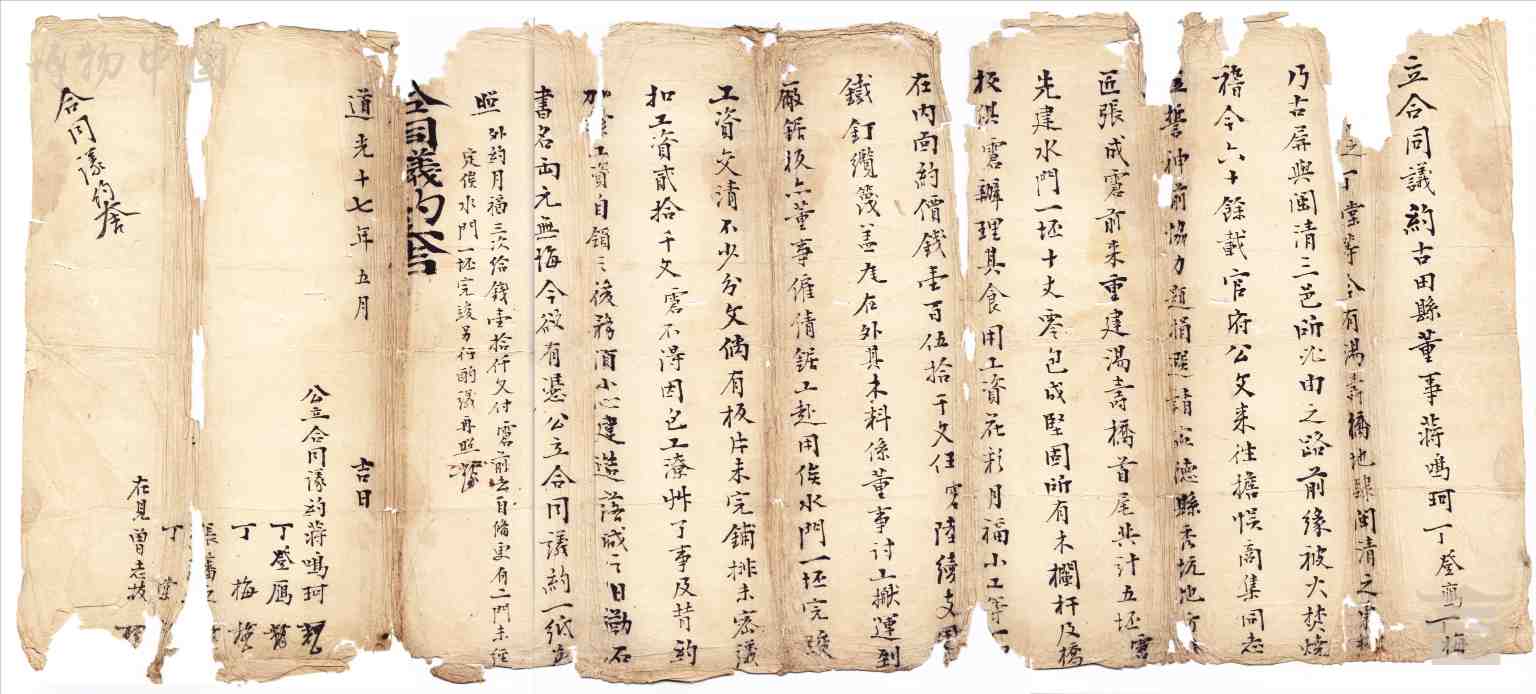 立合同議約古田縣董事蔣鳴珂丁登鴈丁梅
丁棠等今有湯壽橋地轄閩清之
乃古屏與閩清三邑所必由之路前緣被火焚燒
稽今六十餘載官府公文來往擔悞商集同志
立誓神前協力題捐選請寧德縣秀坑地方
匠張成雲前來重建湯壽橋首尾共計五坯雲
先建水門一坯十丈零包成堅固所有木欄杆及橋
板俱雲辦理其食用工資花彩月福小工等
在內面約價錢壹百伍拾千文任雲陸續支
鐵釘纜篾蓋瓦在外其木料係董事討工搬運到
廠鋸板亦董事僱倩鋸工赴用俟水門一坯完竣
工資交清不少分文倘有板片未完鋪排未密議
扣工資貳拾千文雲不得因包工潦艸了事及昔約
工資自鎖之後務須小心建造落成之日勒石
書名兩元無悔今欲有憑公立合同議約一紙為
照
外約月福三次給錢壹拾仟文付雲前去自俻更有二門未經
定俟水門一坯完竣另行酌議再照
合同議約
道光十七年五月
吉日
公立合同議約蔣鳴珂
丁登鴈
丁梅
張
丁棠
在見曾志拔
合同議約
博物中国